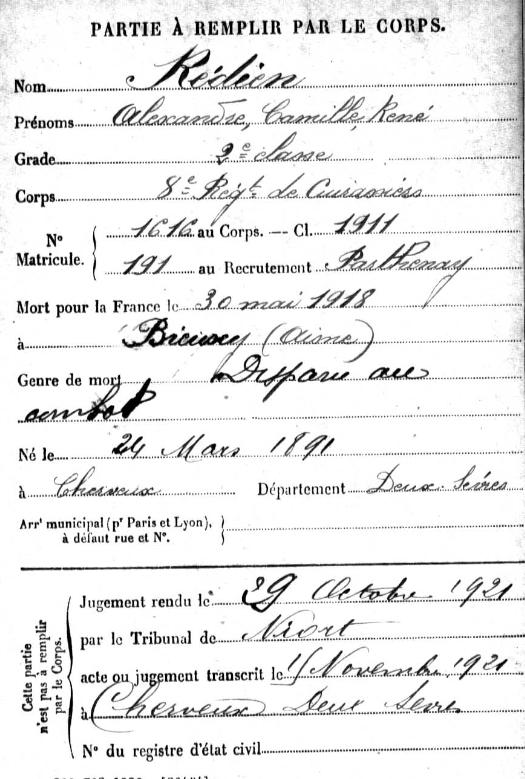 PARTIE À REMPLIR PAR LE CORPS.
Nom
Prénoms Alexandre, Camille, René
Grade 2e classe
Corps 8e Régt. de Cuirassiers
No Matricule. 1616 au Corps. — Cl. 1911
191 au Recrutement Parthenay
Mort pour la France le 30 mai 1918
à (Aisne)
Genre de mort Disparu au
combat
Né le 24 Mars 1891
à Cherveux Département Deux-Sèvres
Arrt municipal (pr Paris et Lyon),
à défaut rue et No.
Cette partie n'est pas à remplir par le Corps.
Jugement rendu le 29 Octobre 1921
par le Tribunal de Niort
acte ou jugement transcrit le Novembre 1921
à Cherveux Deux Sèvres
No du registre d'état civil